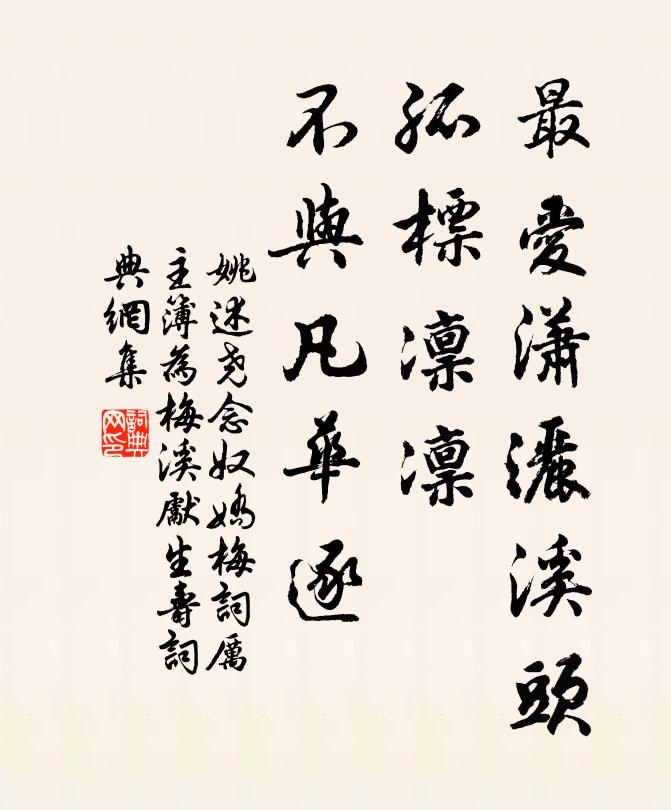 最愛瀟灑溪頭
孤標凛凛
不與凡華逐
姚述堯念奴嬌梅詞厲
主簿為梅溪獻生壽詞
典網集
詞典網印